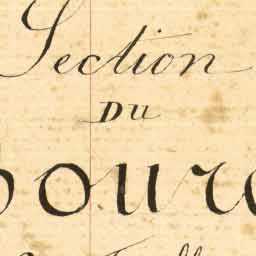 Section
DU
bourg